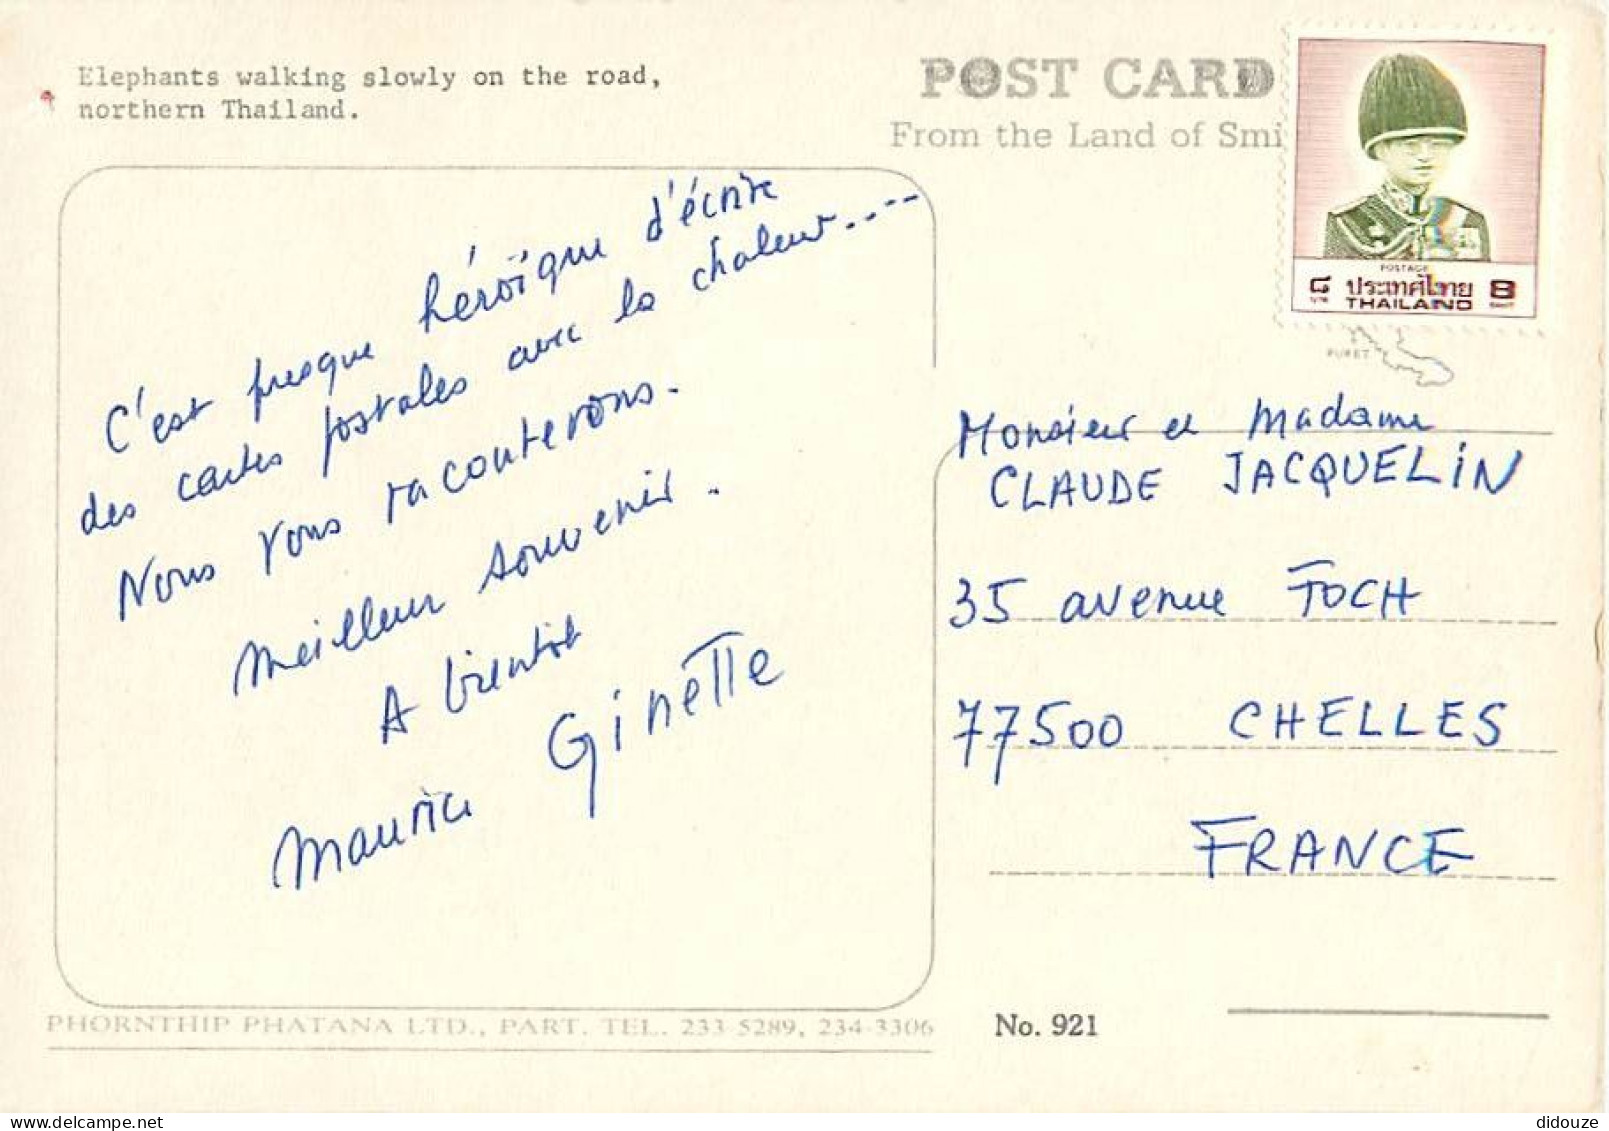 Elephants walking slowly on the road,
northern Thailand.
POST CARD
From the Land of Smi
POSTAGE
๘ ประเทศไทย 8
บาท THAILAND BAHT
PUKET
C'est presque héroïque d'écrire
des cartes postales avec la chaleur.....
Nous vous raconterons.
Meilleur souvenir.
A bientôt
Maurice Ginette
Monsieur et Madame
CLAUDE JACQUELIN
35 avenue FOCH
77500 CHELLES
FRANCE
PHORNTHIP PHATANA LTD., PART. TEL. 233-5289, 234-3306
No. 921
didouze